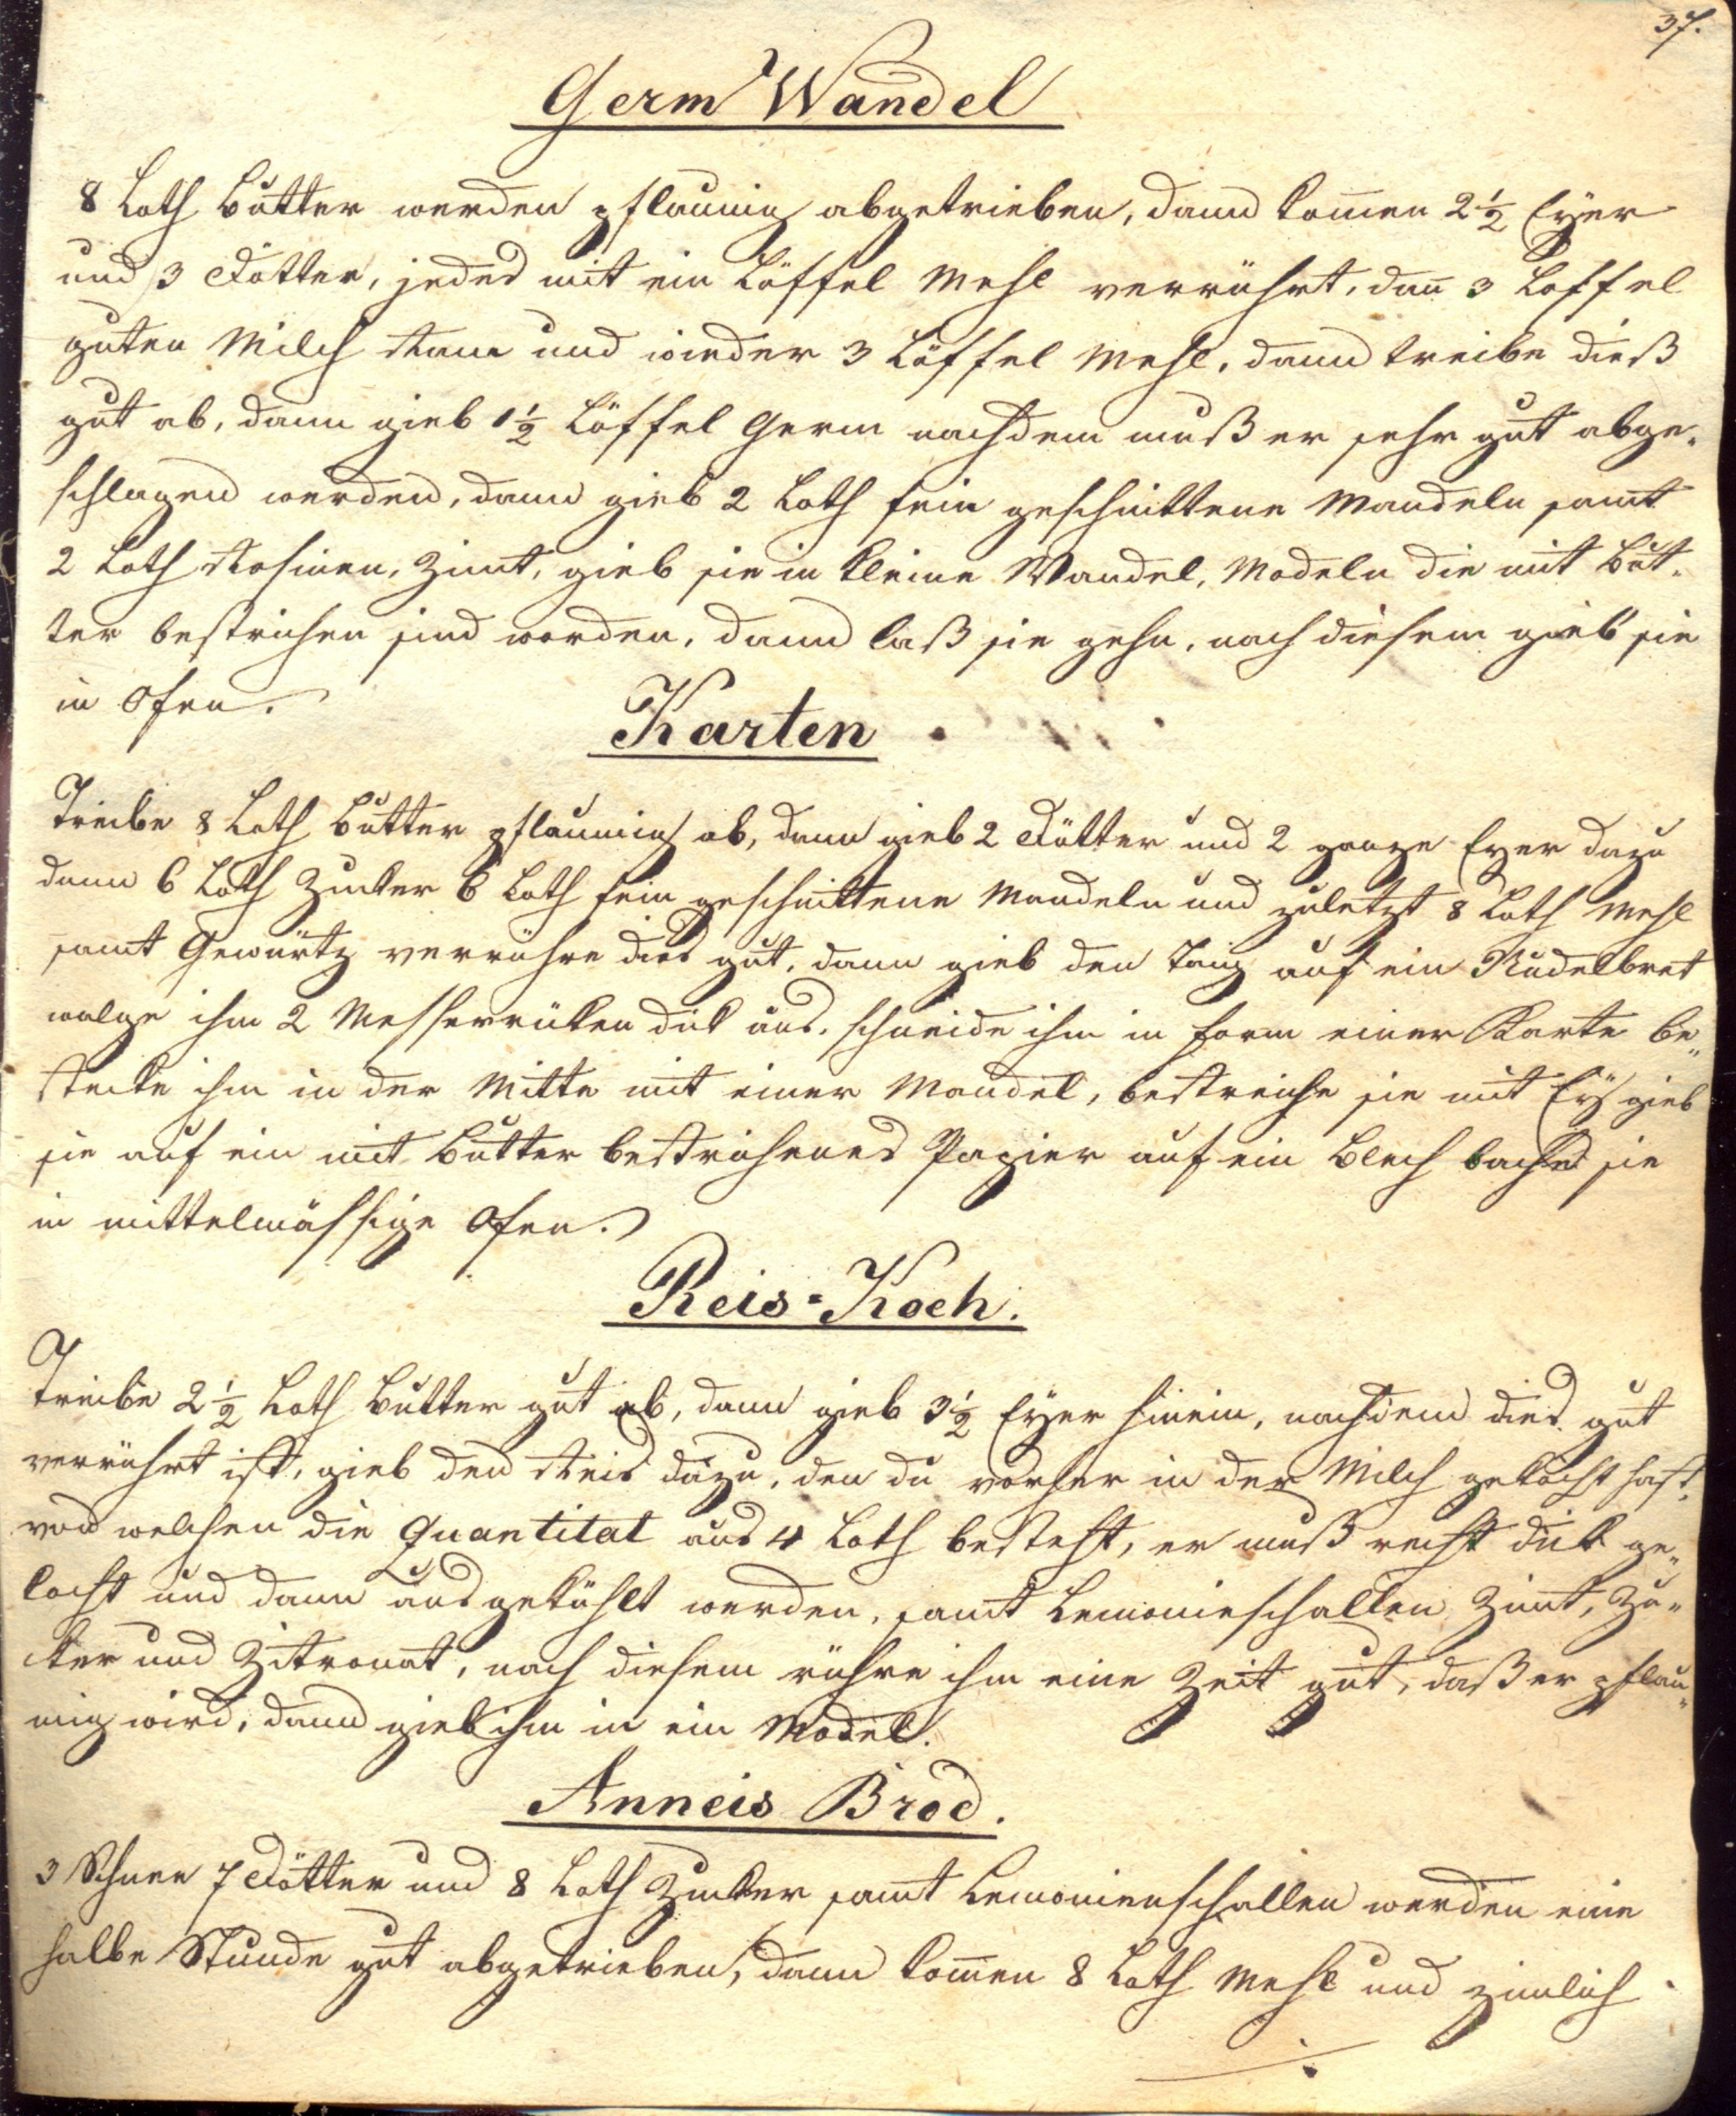 37.
Germ Wandel
8 Loth Butter werden pflaumig abgetrieben, dann kom̄en 2½ Eyer
und 3 Dotter, jedes mit ein Löffel Mehl verrührt, dan̄ 3 Löffel
guten Milch Ram und wieder 3 Löffel Mehl, dann treibe dieß
gut ab, dann gieb 1½ Löffel Germ nachdem muß er sehr gut abge-
schlagen werden, dann gieb 2 Loth fein geschnittene Mandeln sam̄t
2 Loth Rosinen, Zim̄t, gieb sie in kleine Wandel, Modeln die mit But-
ter bestrichen sind worden, dann laß sie gehn, nach diesem gieb sie
in Ofen.
Karten
Treibe 8 Loth Butter pflaumig ab, dann gieb 2 Dötter und 2 ganze Eyer dazu
dann 6 Loth Zucker 6 Loth fein geschnittene Mandeln und zuletzt 8 Loth Mehl
sam̄t Gewürtz verrühre dies gut, dann gieb den Taig auf ein Nudelbret
walge ihm 2 Messerrüken dick aus. schneide ihm in Form einer Karte be-
stecke ihm in der Mitte mit einer Mandel, bestreiche sie mit Ey gieb
sie auf ein mit Butter bestrichenes Papier auf ein Blech bache sie
in mittelmässige Ofen.
Reis-Koch.
Treibe 2½ Loth Butter gut ab, dann gieb 3½ Eyer hinein, nachdem dies gut
verrührt ist, gieb den Reis dazu, den du vorher in der Milch gekocht hast,
von welchen die Quantitat aus 4 Loth besteht, er muß recht dick ge-
kocht und dann ausgekühlt werden, sam̄t Lemonieschallen Zim̄t, Zu-
cker und Zitronat, nach diesem rühre ihm eine Zeit gut, daß er pflau-
mig wird, dann gieb ihm in ein Model.
Anneis Brod.
3 Schnee 7 Dötter und 8 Loth Zucker sam̄t Lemonienschallen werden eine
halbe Stunde gut abgetrieben, dann kom̄en 8 Loth Mehl und zimlich